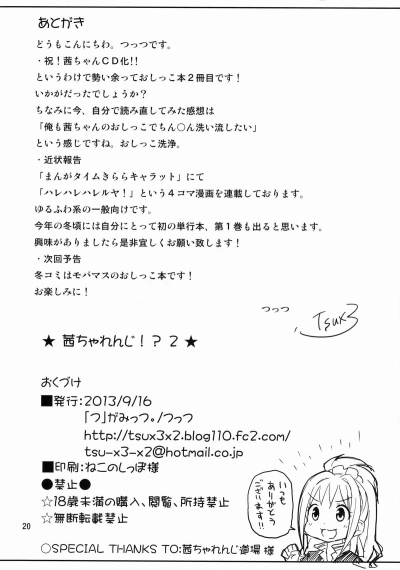 あとがき
どうもこんにちわ。つっつです。
・祝！茜ちゃんＣＤ化!!
というわけで勢い余っておしっこ本２冊目です！
いかがだったでしょうか？
ちなみに今、自分で読み直してみた感想は
「俺も茜ちゃんのおしっこでちん○ん洗い流したい」
という感じですね。おしっこ洗浄。
・近状報告
「まんがタイムきららキャラット」にて
「ハレハレハレルヤ！」という４コマ漫画を連載しております。
ゆるふわ系の一般向けです。
今年の冬頃には自分にとって初の単行本、第１巻も出ると思います。
興味がありましたら是非宜しくお願い致します！
・次回予告
冬コミはモバマスのおしっこ本です！
お楽しみに！
つっつ
Tsux3
★ 茜ちゃれんじ！？ 2 ★
おくづけ
■発行：2013/9/16
「つ」がみっつ。/つっつ
http://tsux3x2.blog110.fc2.com/
tsu-x3-x2@hotmail.co.jp
■印刷：ねこのしっぽ様
●禁止●
☆18歳未満の購入、閲覧、所持禁止
☆無断転載禁止
○SPECIAL THANKS TO:茜ちゃれんじ道場 様
いつも
ありがとう
ございます!!
20